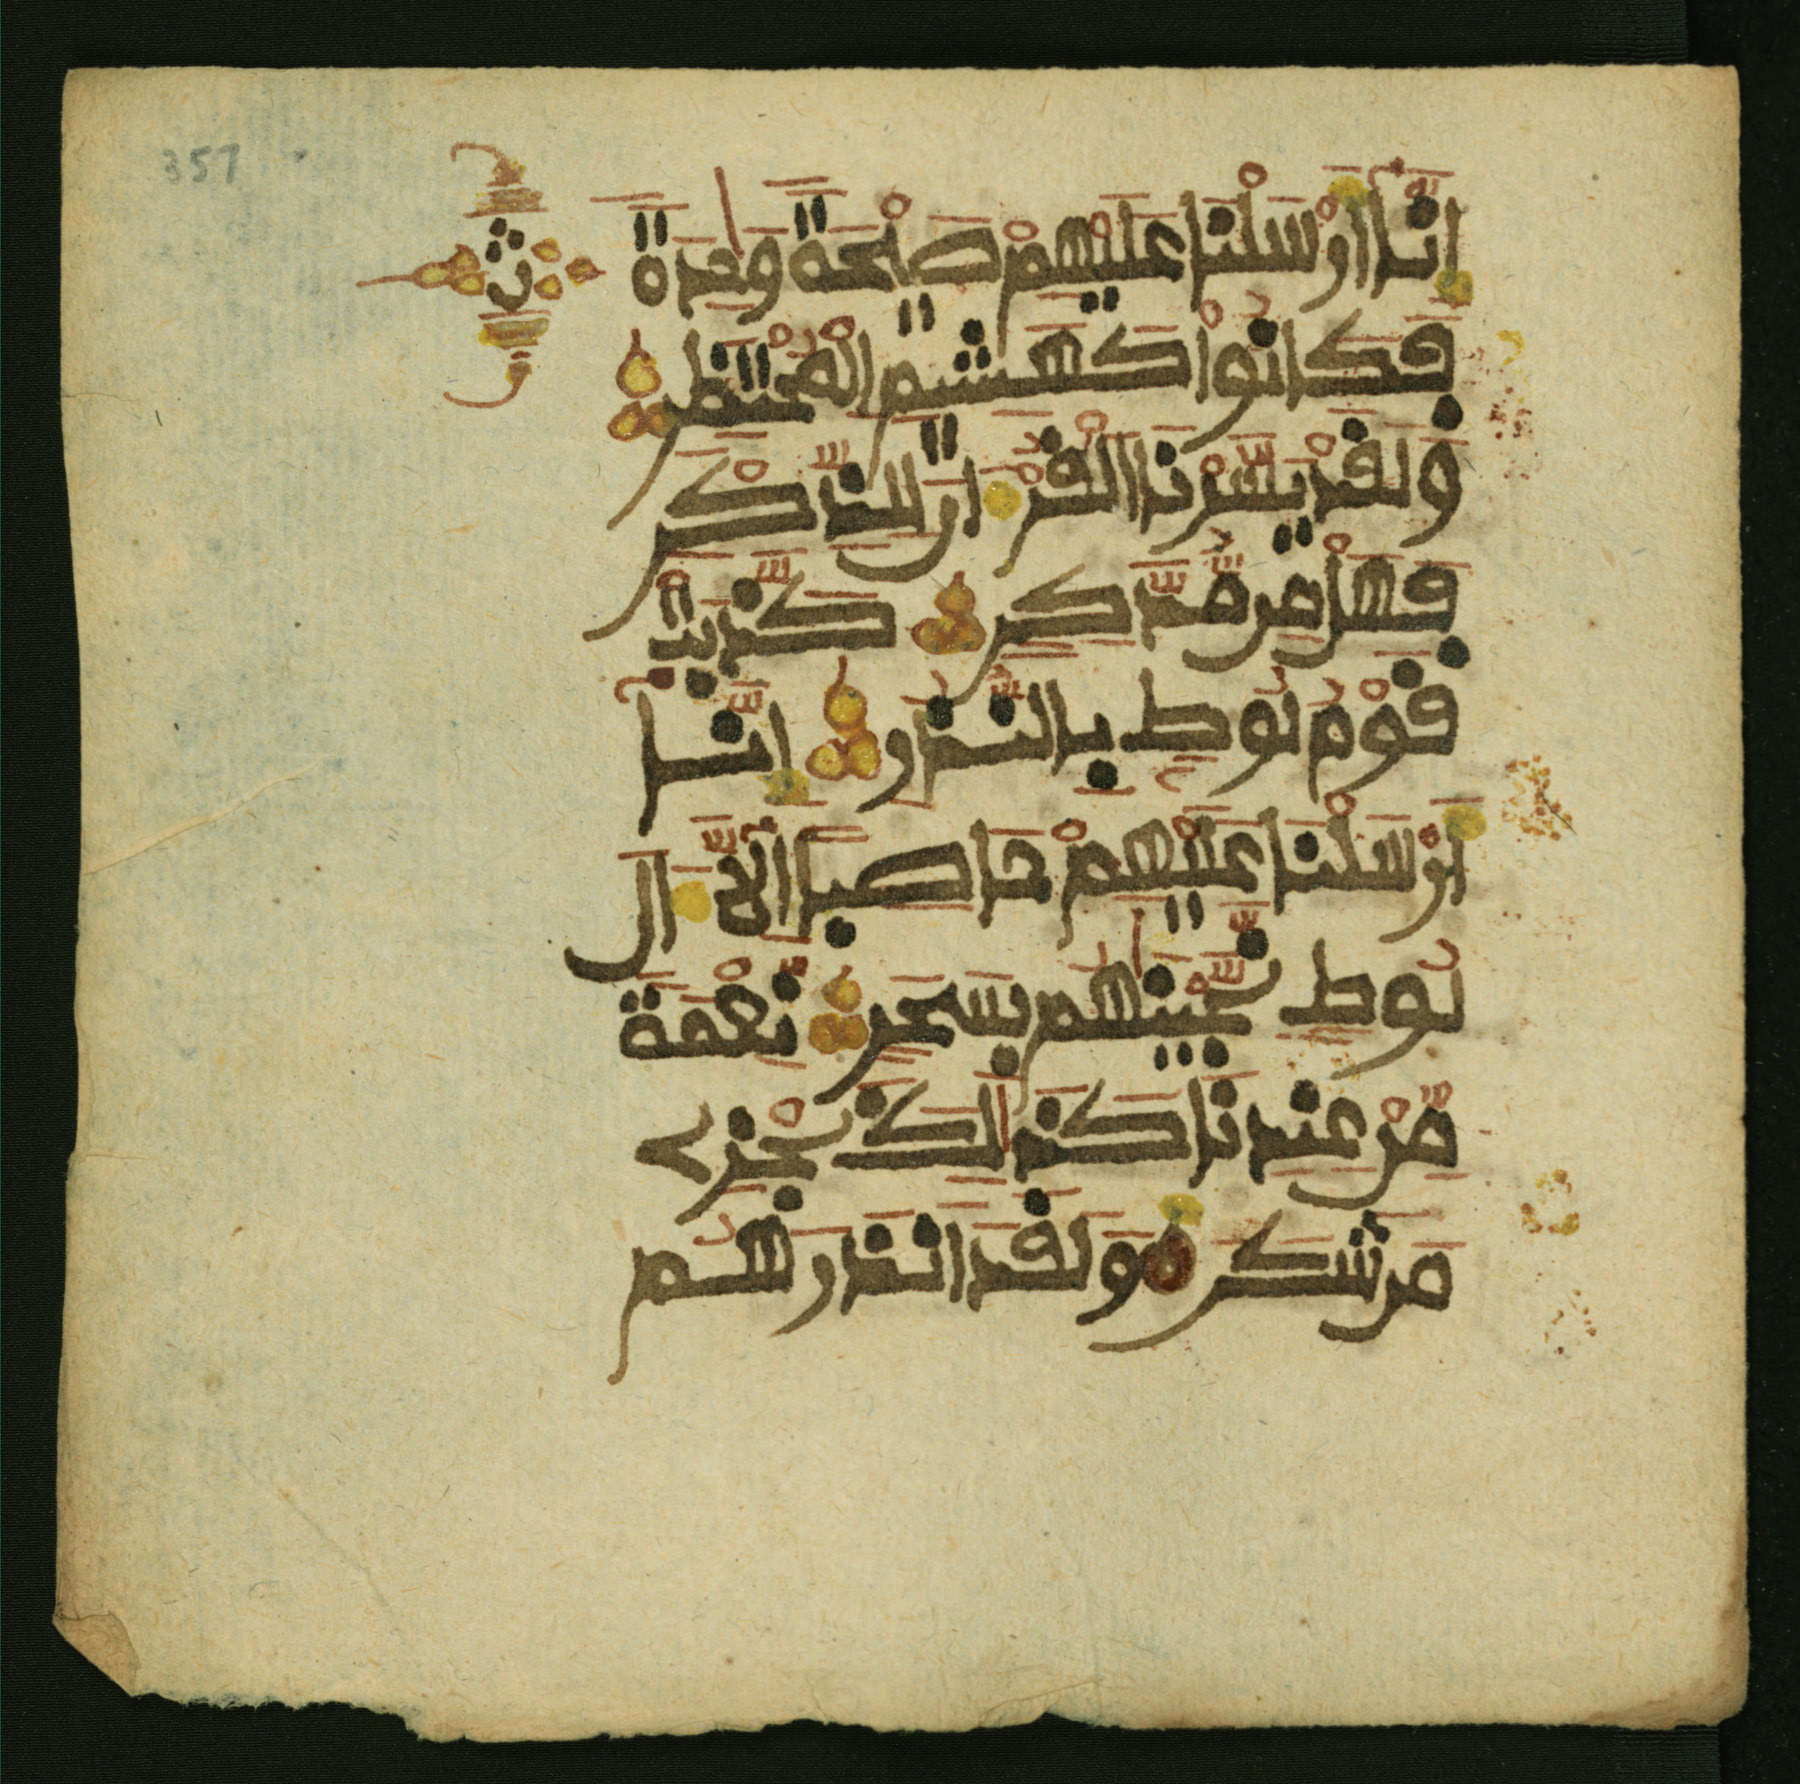 357
ث
إِنَّا أَرْسَلْنَا عَلَيْهِمْ صَيْحَةً وَٰحِدَةً
فَكَانُوا كَهَشِيمِ الْمُحْتَظِرِ
وَلَقَدْ يَسَّرْنَا الْقُرْءَانَ لِلذِّكْرِ
فَهَلْ مِن مُّدَّكِرٍ كَذَّبَتْ
قَوْمُ لُوطٍ بِالنُّذُرِ إِنَّا
أَرْسَلْنَا عَلَيْهِمْ حَاصِبًا إِلَّا ءَالَ
لُوطٍ نَّجَّيْنَٰهُم بِسَحَرٍ نِّعْمَةً
مِّنْ عِندِنَا كَذَٰلِكَ نَجْزِي
مَن شَكَرَ وَلَقَدْ أَنذَرَهُم